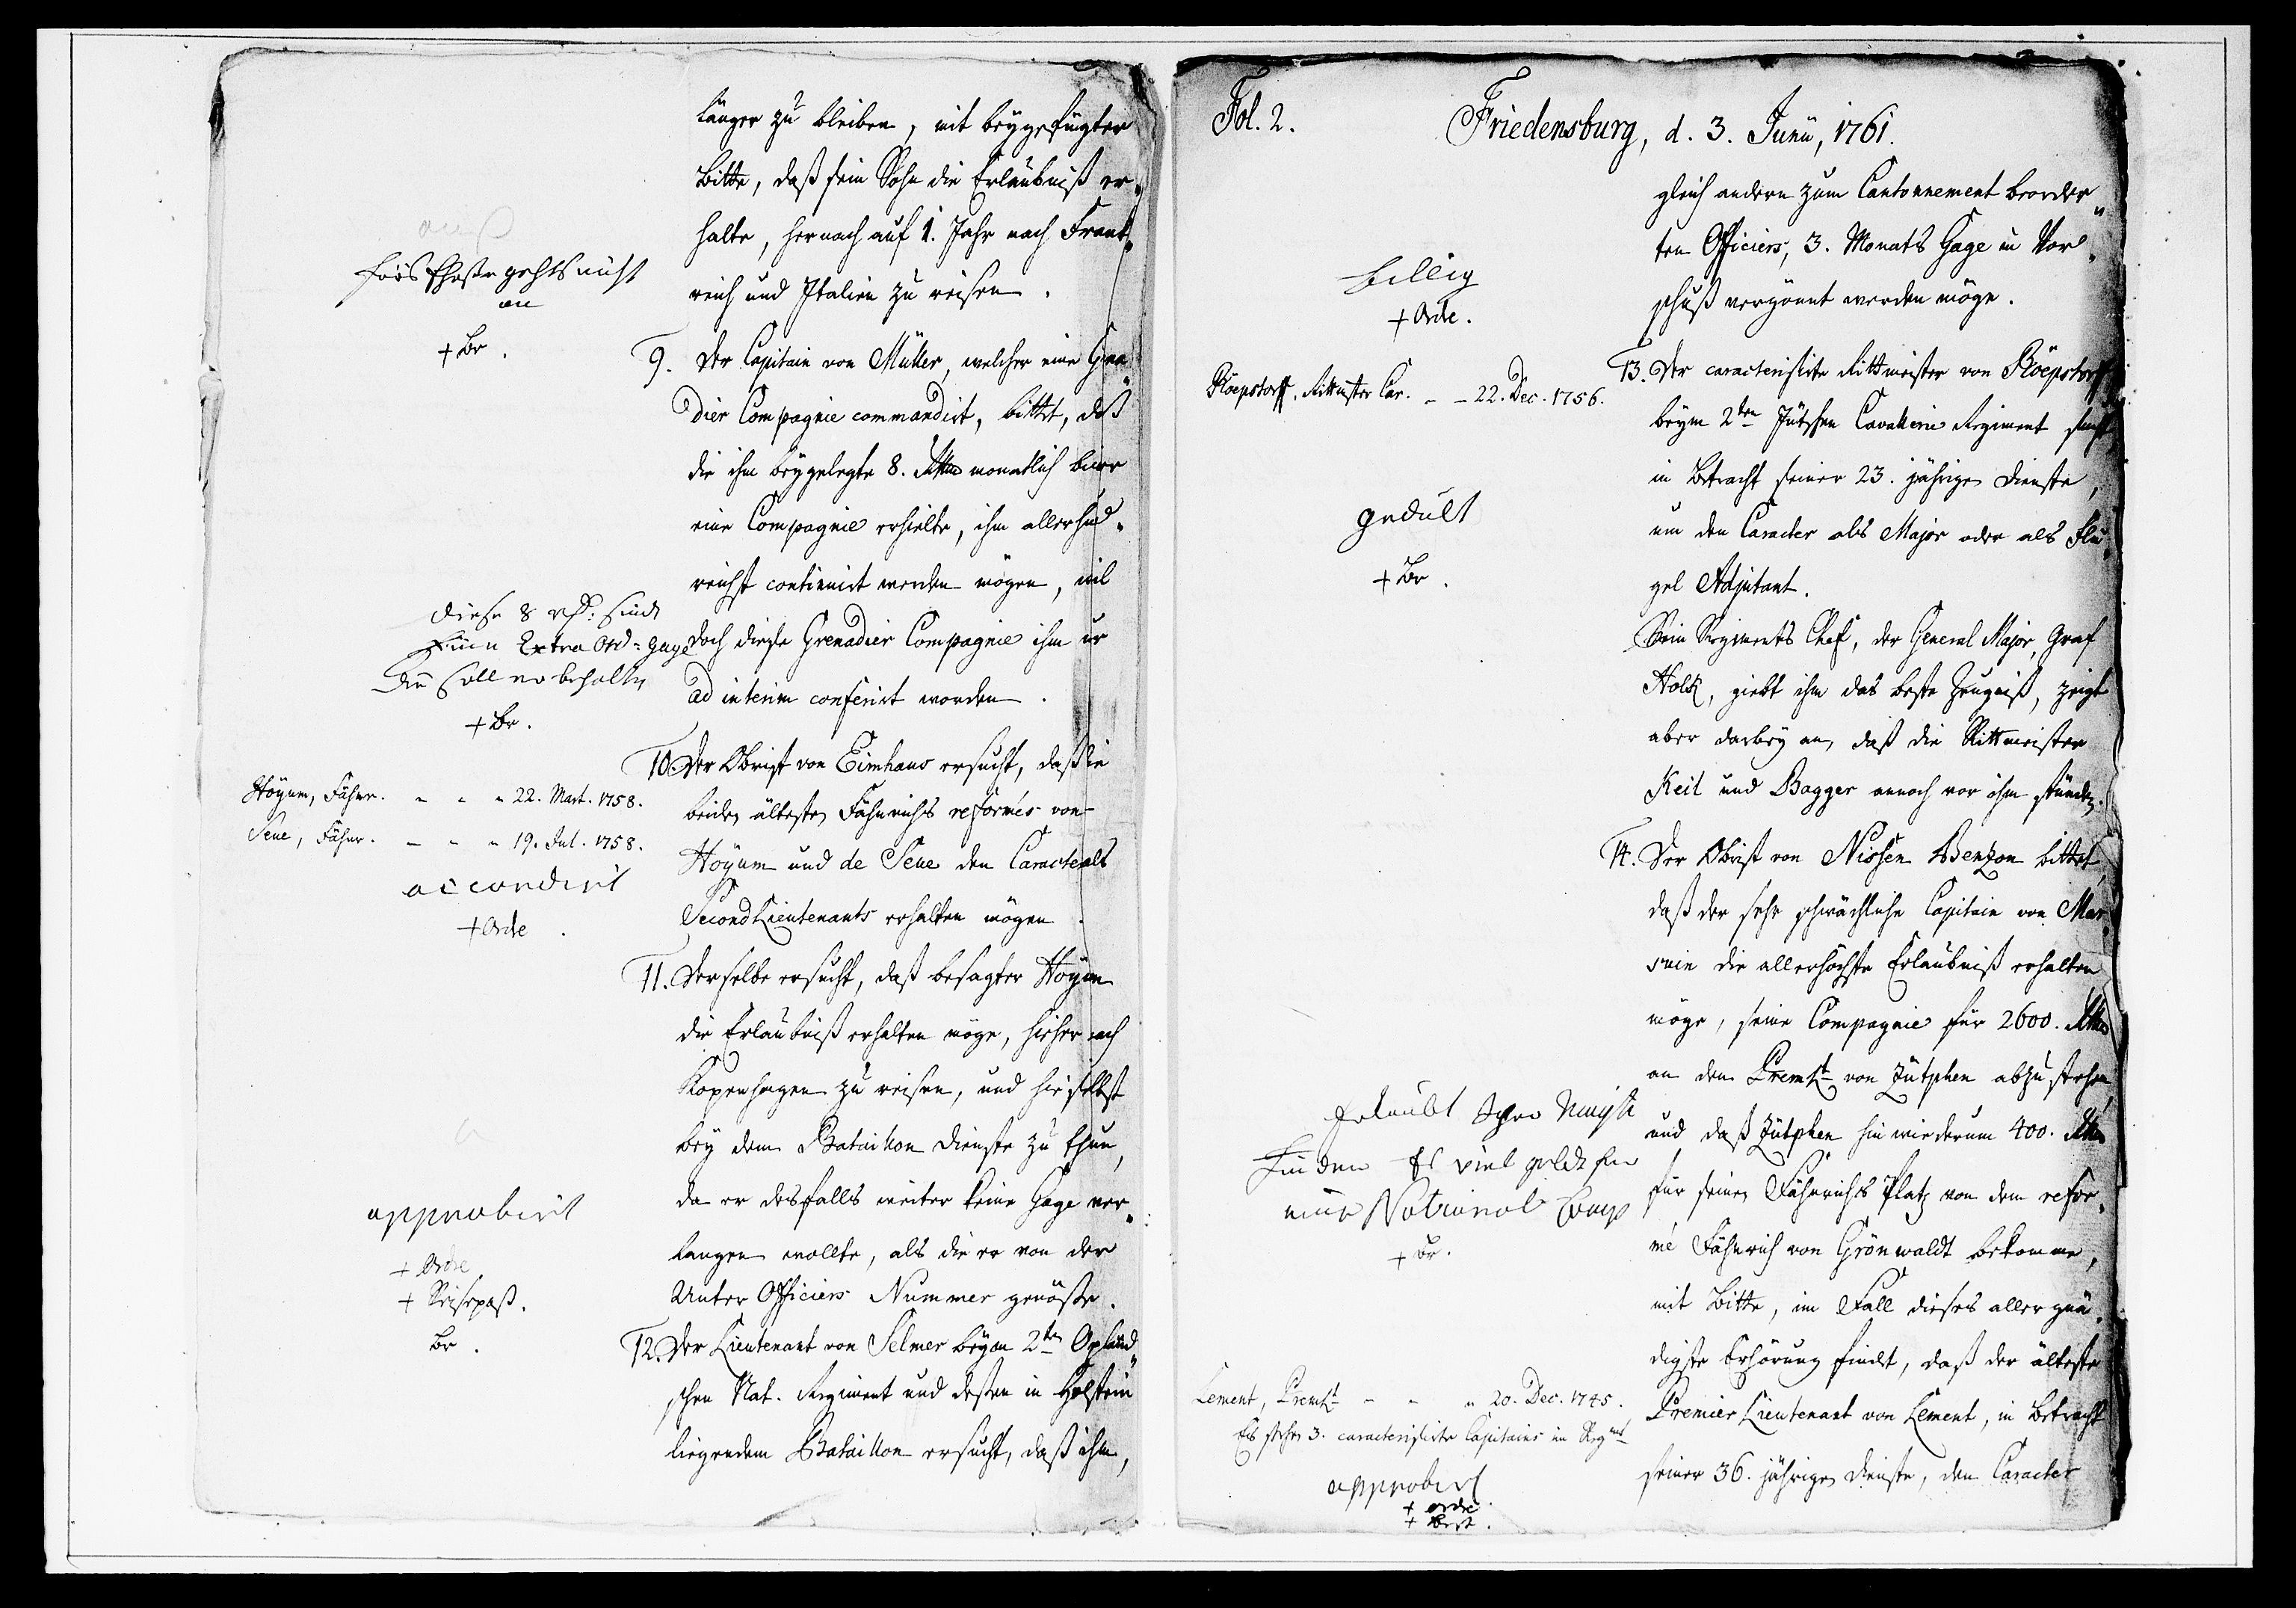 länger zu bleiben, mit beygefügter
Bitte, daß sein Sohn die Erlaubniß er„
halte, hernach auf 1. Jahr nach Frank„
reich und Italien zu reisen.
fürs Erste gehts nicht
an
+ Br.
9. Der Capitain von Müller, welcher eine Gren
dier Compagnie commandirt, bittet, daß
die ihm beygelegte 8. Rthlr monatlich biß er
eine Compagnie erhielte, ihm allerhuld„
reichst continuirt werden mögen, weil
doch diese Grenadier Compagnie ihm nur
ad interim conferirt worden.
diese 8 rth. sind
keine Extra Ord= gage
die soll er behalten
+ Br.
10. Der Obrist von Eimhaus ersucht, daß die
beiden ältesten Fähnrichs reformés von
Höyum und de Seue den Caracter als
Second Lieutenants erhalten mögen.
Höyum, Fähnr. „ „ „ 22. Mart. 1758.
Seue, Fähnr. „ „ „ 19. Jul. 1758.
accordirt
+ Ordre.
11. Derselbe ersucht, daß besagter Höyum
die Erlaubniß erhalten möge, hieher nach
Kopenhagen zu reisen, und hieselbst
bey dem Bataillon Dienste zu thun,
da er desfalls weiter keine Gage ver„
langen wollte, als die er von der
Unter Officiers Nummer genösse.
approbirt
+ Ordre
+ Reisepaß.
Br.
12. Der Lieutenant von Selmer beym 2ten Opländ„
schen Nat. Regiment und dessen in Holstein
liegendem Bataillon ersucht, daß ihm,
Fol. 2.
Friedensburg, d. 3. Junii, 1761.
gleich andern zum Cantonnement beorder„
ten Officiers, 3. Monats Gage in Vor„
schuß vergönnt werden möge.
billig
+ Ordre.
13. Der caracterisirte Rittmeister von Röepstorff
beym 2ten Jütschen Cavallerie Regiment sucht
in Betracht seiner 23. jährigen Dienste,
um den Caracter als Major oder als Flü„
gel Adjutant.
Sein Regiments Chef, der General Major, Graf
Holck, giebt ihm das beste Zeugniß, zeigt
aber darbey an, daß die Rittmeister
Keil und Bagger annoch vor ihm stünden.
Röepstorff, Rittmster Car. „ „ 22. Dec. 1756.
gedult
+ Br.
14. Der Obrist von Nissen Benzon bittet,
daß der sehr schwächliche Capitain von Mar„
suin die allerhöchste Erlaubniß erhalten
möge, seine Compagnie für 2600. Rthlr
an den Premlt von Zütphen abzustehen
und daß Zütphen hinwiederum 400. Rthlr
für seinen Fähnrichs Platz von dem refor„
mé Fähnrich von Grönwaldt bekomme,
mit Bitte, im Fall dieses allergnä„
digste Erhörung findet, daß der älteste
Premier Lieutenant von Lement, in Betracht
seiner 36. jährigen Dienste, den Caracter
Erlaubt
finden es viel geldt für
eine National Comp
+ Br.
Lement, Premlt „ „ „ 20. Dec. 1745.
Es stehen 3. caracterisirte Capitains im Regmt
approbirt
+ ordre.
+ Best.